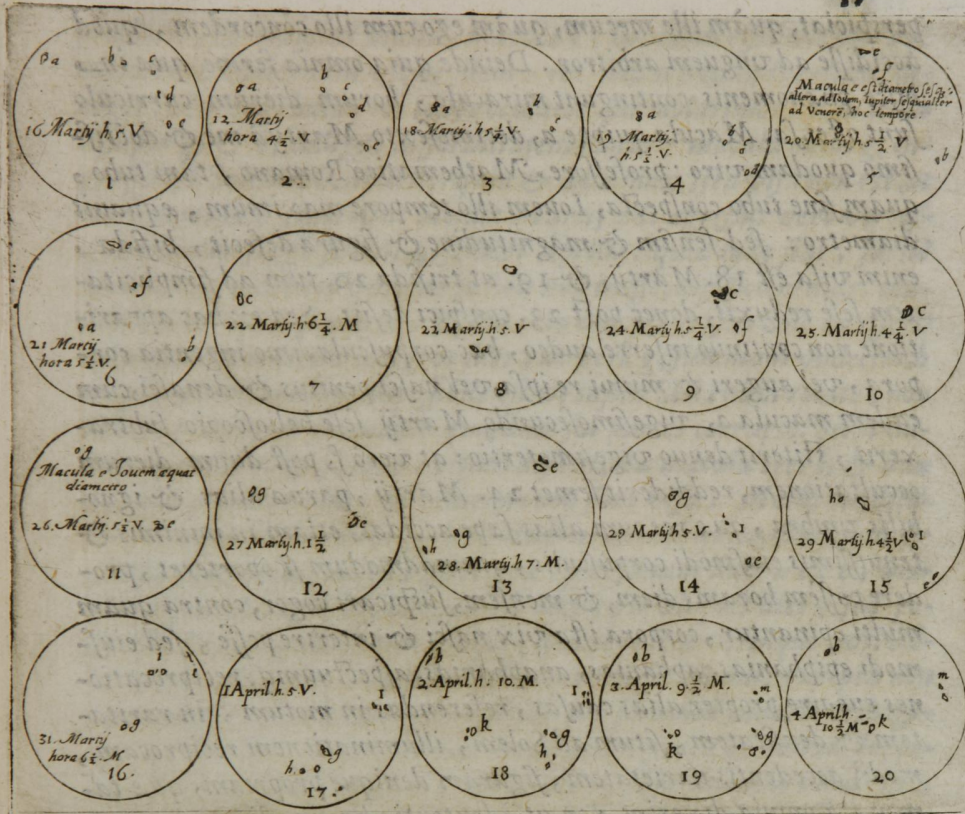 a b c
d
16 Martij h. 5. V. e
1
a b
c
12 Martij d
hora 4 1/2 V.
e
2.
8 a b
18. Martij h 5 1/4 V. c
3
8 a
19 Martij b
h. 5 1/2 V.
d
4
e
f
Macula e est diametro sesqui
altera ad Iovem, Iupiter sesquialter
ad Venerē, hoc tempore.
20 Martij h. 5 1/2 V
b
5
e
f
a
21 Martij b
hora 5 1/2 V.
6
c
22 Martij h 6 1/4. M
7
22 Martij h. 5. V
a
8
c
24. Martij h. 5 1/4 V. f
9
c
25. Martij h. 4 1/2. V
10
g
Macula e Iovem æquat
diametro
26. Martij. 5 1/2 V. e
11
g
e
27 Martij. h. 1 1/2
12
e
g
h
28. Martij h 7. M.
13
g
29 Martij h. 5. V. i
e
14
h
29 Martij h. 4 1/2 V i
e
15
i
e
g
31. Martij
hora 6 1/2. M
16.
1 April. h. 5. V. i
g
h.
17.
b
2 April. h. 10. M. i
k g
h
18
b
3. April. 9 1/2 M. m
k g
19
b
m
4 April h
10 1/2 M k
20